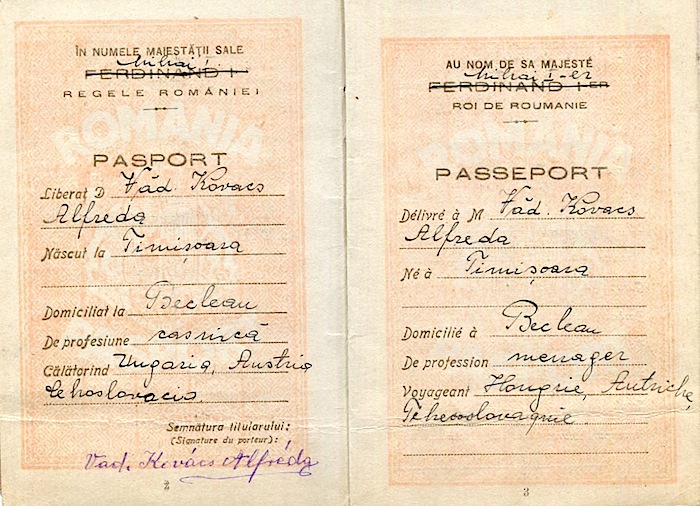 ÎN NUMELE MAIESTĂȚII SALE
Mihai I.
FERDINAND I.
REGELE ROMÂNIEI
ROMANIA
PASPORT
Liberat D Văd. Kovacs
Alfreda
Născut la Timișoara
Domiciliat la Beclean
De profesiune casnică
Călătorind Ungaria, Austria
Cehoslovacia
Semnătura titularului:
(Signature du porteur):
Vad. Kovács Alfréda
2
AU NOM DE SA MAJESTÉ
Mihai I-er
FERDINAND I-ER
ROI DE ROUMANIE
ROMANIA
PASSEPORT
Délivré à M Văd. Kovacs
Alfreda
Né à Timișoara
Domicilié à Beclean
De profession menager
Voyageant Hongrie, Autriche,
Tchecoslovaqnie
3